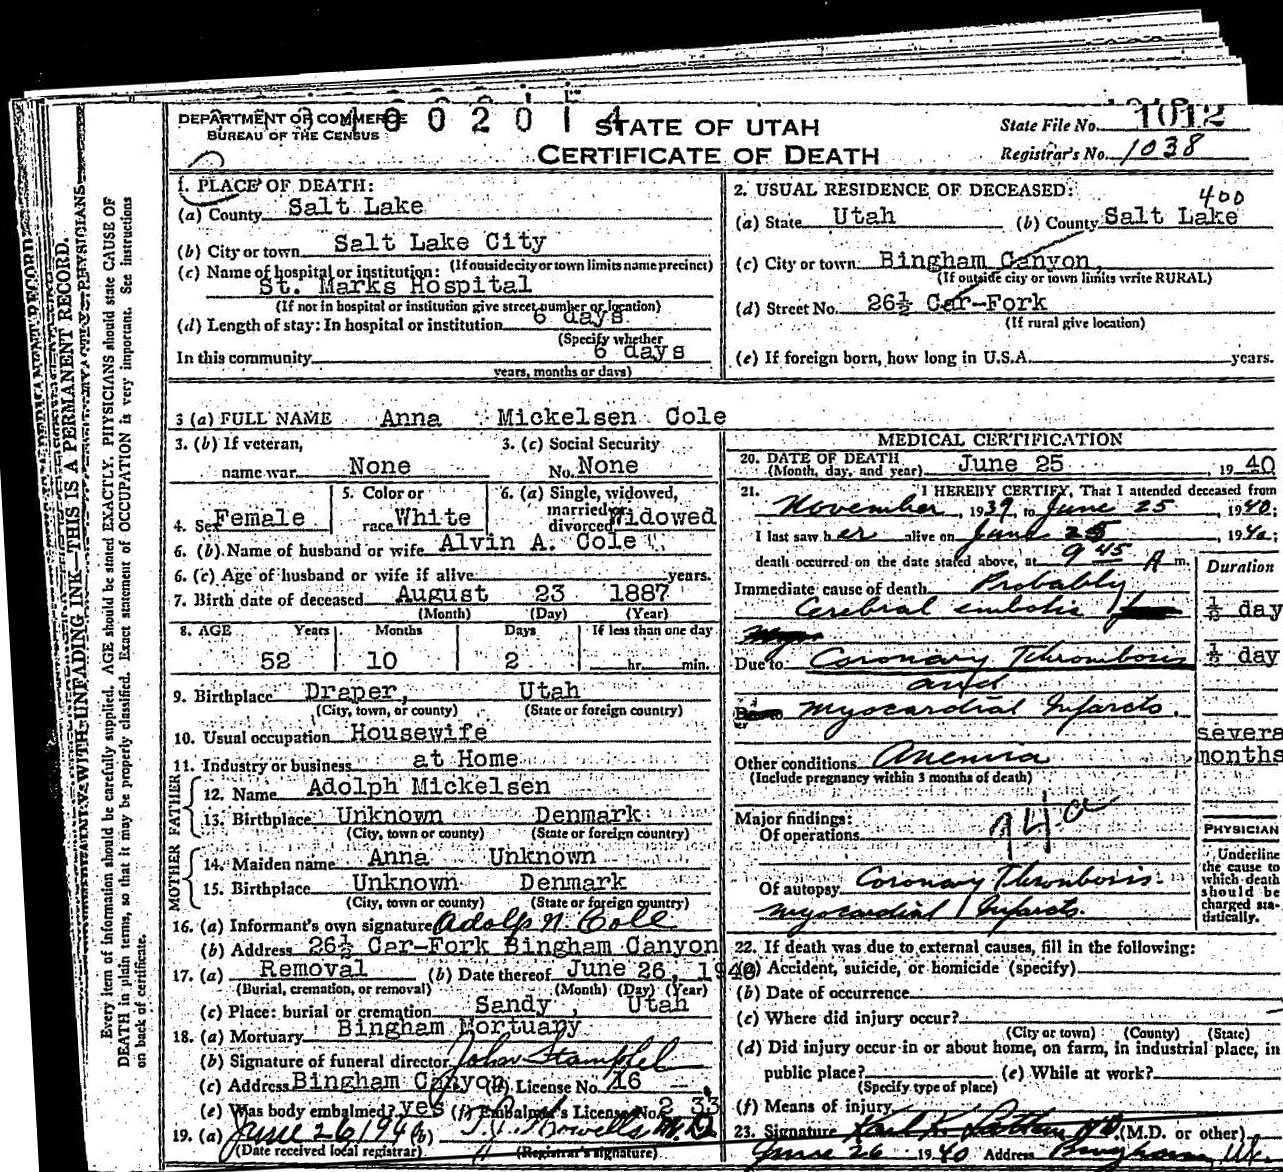 DEPARTMENT OF COMMERCE
BUREAU OF THE CENSUS
STATE OF UTAH
CERTIFICATE OF DEATH
State File No. 1012
Registrar's No. 1038
1. PLACE OF DEATH:
(a) County Salt Lake
(b) City or town Salt Lake City
(If outside city or town limits name precinct)
(c) Name of hospital or institution:
St. Marks Hospital
(If not in hospital or institution give street number or location)
(d) Length of stay: In hospital or institution 6 days
(Specify whether
In this community 6 days
years, months or days)
2. USUAL RESIDENCE OF DECEASED:
400
(a) State Utah (b) County Salt Lake
(c) City or town Bingham Canyon
(If outside city or town limits write RURAL)
(d) Street No. 26½ Car-Fork
(If rural give location)
(e) If foreign born, how long in U.S.A. years.
3 (a) FULL NAME Anna Mickelsen Cole
3. (b) If veteran, name war None
3. (c) Social Security No. None
4. Sex Female
5. Color or race White
6. (a) Single, widowed, married or divorced Widowed
6. (b) Name of husband or wife Alvin A. Cole
6. (c) Age of husband or wife if alive years.
7. Birth date of deceased August 23 1887
(Month) (Day) (Year)
8. AGE Years Months Days If less than one day
52 10 2 hr. min.
9. Birthplace Draper, Utah
(City, town, or county) (State or foreign country)
10. Usual occupation Housewife
11. Industry or business at Home
FATHER
12. Name Adolph Mickelsen
13. Birthplace Unknown Denmark
(City, town or county) (State or foreign country)
MOTHER
14. Maiden name Anna Unknown
15. Birthplace Unknown Denmark
(City, town or county) (State or foreign country)
16. (a) Informant's own signature Adolp N. Cole
(b) Address 26½ Car-Fork Bingham Canyon
17. (a) Removal (b) Date thereof June 26, 1940
(Burial, cremation, or removal) (Month) (Day) (Year)
(c) Place: burial or cremation Sandy, Utah
18. (a) Mortuary Bingham Mortuary
(b) Signature of funeral director John Stampfel
(c) Address Bingham Canyon (d) License No. 16
(e) Was body embalmed? yes (f) Embalmer's License No. 233
19. (a) June 26 1940 (b) Howells M.D.
(Date received local registrar) (Registrar's signature)
MEDICAL CERTIFICATION
20. DATE OF DEATH
(Month, day, and year) June 25, 1940
21. I HEREBY CERTIFY, That I attended deceased from
November, 1939, to June 25, 1940;
I last saw her alive on June 25, 1940;
death occurred on the date stated above, at 9 45 A m.
Duration
Immediate cause of death Probably
Cerebral embolic ⅓ day
Due to Coronary Thrombosis ⅓ day
and
myocardial Infarcts.
several
months
Other conditions Anemia
(Include pregnancy within 3 months of death)
Major findings:
Of operations
94a
Of autopsy Coronary Thrombosis.
myocardial Infarcts.
PHYSICIAN
Underline
the cause to
which death
should be
charged sta-
tistically.
22. If death was due to external causes, fill in the following:
(a) Accident, suicide, or homicide (specify)
(b) Date of occurrence
(c) Where did injury occur?
(City or town) (County) (State)
(d) Did injury occur in or about home, on farm, in industrial place, in
public place? (e) While at work?
(Specify type of place)
(f) Means of injury
23. Signature (M.D. or other)
June 26 1940 Address Bingham, Ut.
THIS IS A PERMANENT RECORD.
Every item of information should be carefully supplied. AGE should be stated EXACTLY. PHYSICIANS should state CAUSE OF
DEATH in plain terms, so that it may be properly classified. Exact statement of OCCUPATION is very important. See instructions
on back of certificate.